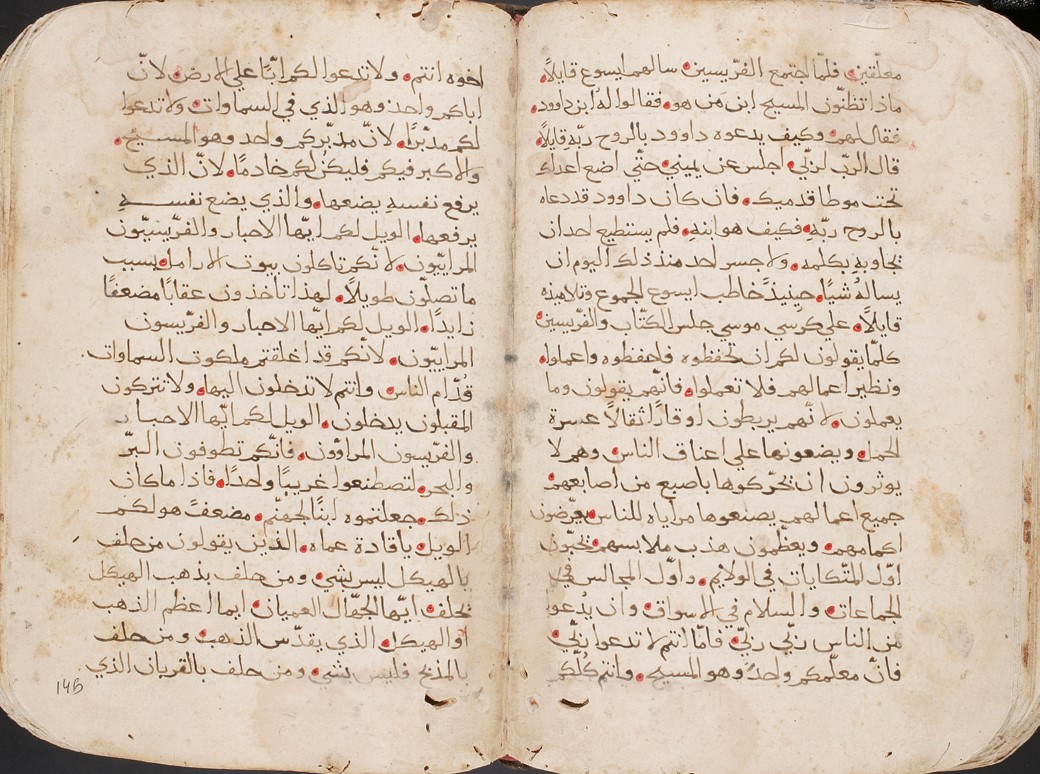 معلّقين. فلمّا اجتمع الفرّيسين سالهم ايسوع قايلاً.
ماذا تظنّون المسيح ابن مَن هو. فقالوا لهُ ابن داوود.
فقال لهم. وكيف يدعوه داوود بالروح ربّهِ قايلاً.
قال الربّ لربّي. اجلس عن يميني. حتّي اضع اعداك
تحت موطا قدميك. فان كان داوود قد دعاه
بالروح ربّهِ. فكيف هو ابنهِ. فلم يستطيع احد ان
يجاوبهِ بكلمه. ولا جسر احد منذ ذلك اليوم ان
يسالهُ شياً. حينيذً خاطب ايسوع الجموع وتلاميذه
قايلاً. علي كرسي موسي جلس الكتّاب والفرّيسين.
كلمّا يقولون لكم ان تحفظوه فاحفظوه واعملوا.
ونظير اعمالهم فلا تعملوا. فانّهم يقولون وما
يعملون. لانّهم يربطون اوقارًا اثقالاً عسرة
الحمل. ويضعونها علي اعناق الناس. وهم لا
يوثرون ان يحرّكوها باصبع من اصابعهم.
جميع اعمالهم يصنعوها مراياه للناس. يعرّضون
اكمامهم. ويعظّمون هذب ملابسهم. يحبّون
اوّل المتّكايات في الولايم. واوّل المجالس في
الجماعات. والسلام في الاسواق. وان يُدعوا
من الناس ربّي ربّي. فامّا انتم لا تدعوا ربّي.
فانّ معلّمكم واحدٌ وهو المسيح. وانتم كلّكم
اخوه انتم. ولا تدعوا لكم ابًّا علي الارض. لانّ
اباكم واحد وهو الذي في السماوات. ولا تدعوا
لكم مدبّرًا. لانّ مدبّركم واحد وهو المسيح.
والاكبر فيكم فليكنُ لكم خادمًا. لانّ الذي
يرفع نفسهِ يضعها. والذي يضع نفسـهِ
يرفعها. الويل لكم ايّها الاحبار والفرّيسيّون
المراييّون. لانّكم تاكلون بيوت الارامل. بسبب
ما تصلّون طويلاً. لهذا تاخذون عقابًا مضعفًا
زايدًا. الويل لكم ايّها الاحبار والفرّيسون
المراييّون. لانّكم قد اغلقتم ملكوت السماوات
قُدّام الناس. وانتم لا تدخلون اليها. ولا تتركون
المقبلون يدخلون. الويل لكم ايّها الاحبار
والفرّيسون المراؤون. فانّكم تطوفون البرّ
والبحر. لتصطنعوا غريبًا واحدًا. فاذا ما كان
ذلك. جعلتموه ابنًا لجهنّم. مضعفً هو لكم
الويل. يا قادة عماه. الذين يقولون من حلف
بالهيكل ليس بشي. ومن حلف بذهب الهيكل
يحلف. ايّها الجهّال العميان. ايما اعظم الذهب
او الهيكل. الذي يقدّس الذهب. ومن حلف
بالمذبح فليس بشي. ومن حلف بالقربان الذي
14B